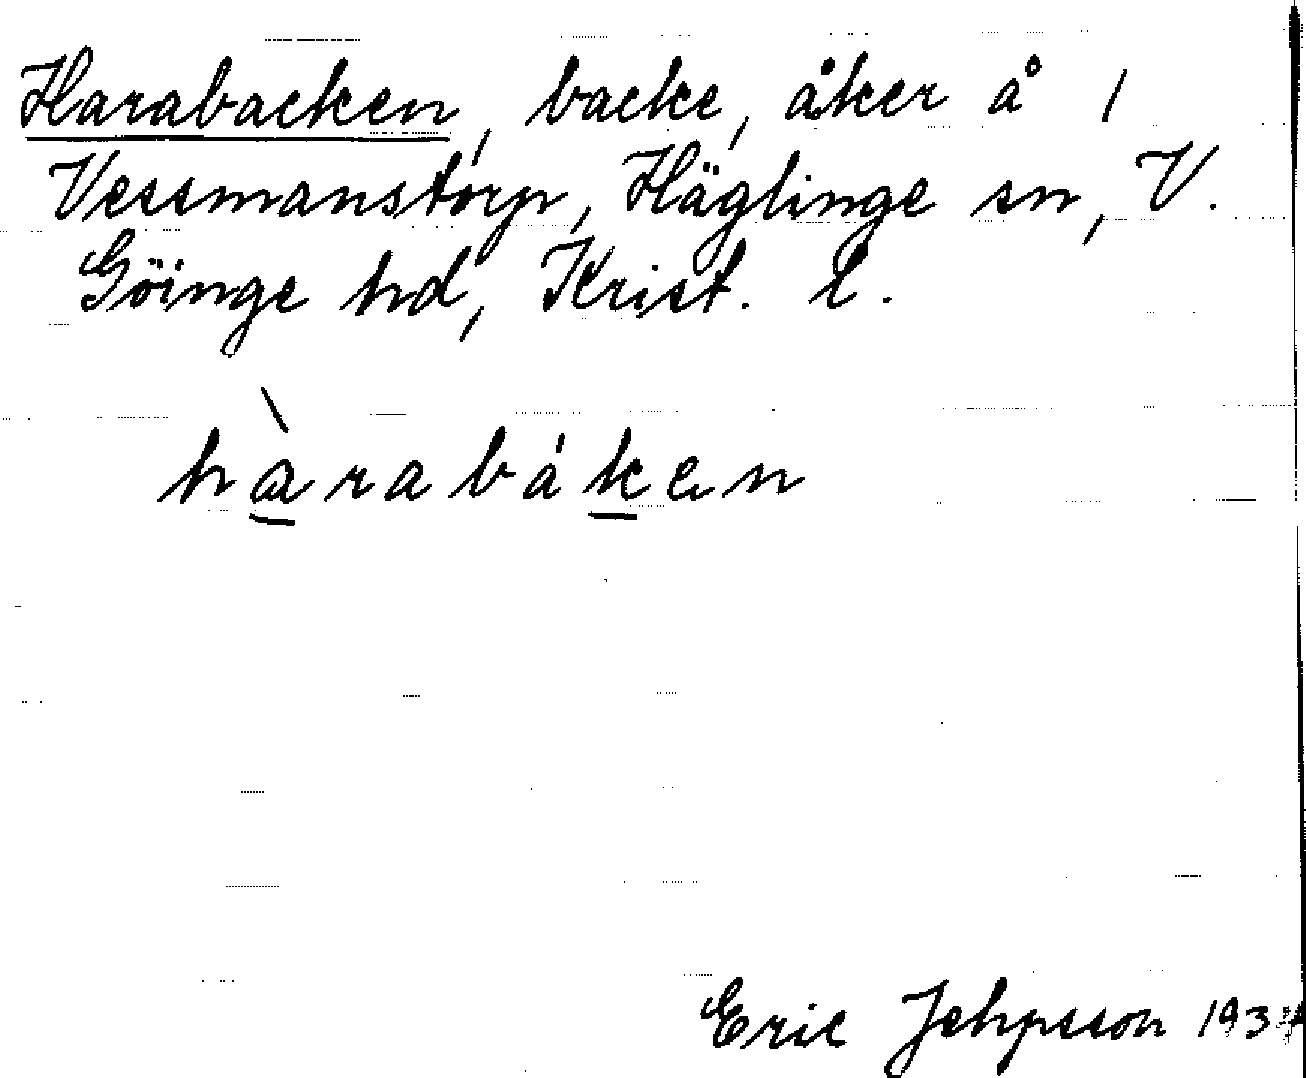 Harabacken, backe, åker å 1
Vessmanstorp, Häglinge sn, V.
Göinge hd, Krist. l.
hàrabáken
Eric Jehpsson